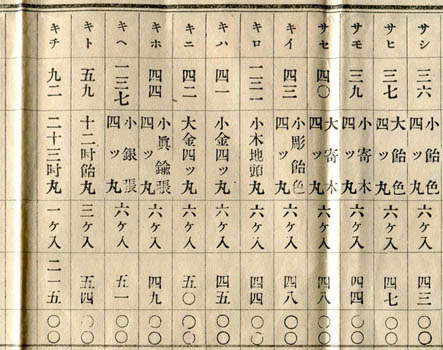 サシ 三六 小飴色四ッ丸 六ヶ入 四三 〇〇
サヒ 三七 大飴色四ッ丸 六ヶ入 四七 〇〇
サモ 三九 小寄木四ッ丸 六ヶ入 四四 〇〇
サセ 四〇 大寄木四ッ丸 六ヶ入 四八 〇〇
キイ 四三 小彫飴色四ッ丸 六ヶ入 四八 〇〇
キロ 一三一 小木地頭丸 六ヶ入 四三 〇〇
キハ 四一 小金四ッ丸 六ヶ入 四五 〇〇
キニ 四二 大金四ッ丸 六ヶ入 五〇 〇〇
キホ 四四 小眞鍮張四ッ丸 六ヶ入 四九 〇〇
キヘ 一三七 小銀張四ッ丸 六ヶ入 五一 〇〇
キト 五九 十二吋飴丸 三ヶ入 五四 〇〇
キチ 九二 二十三吋丸 一ヶ入 二一五 〇〇